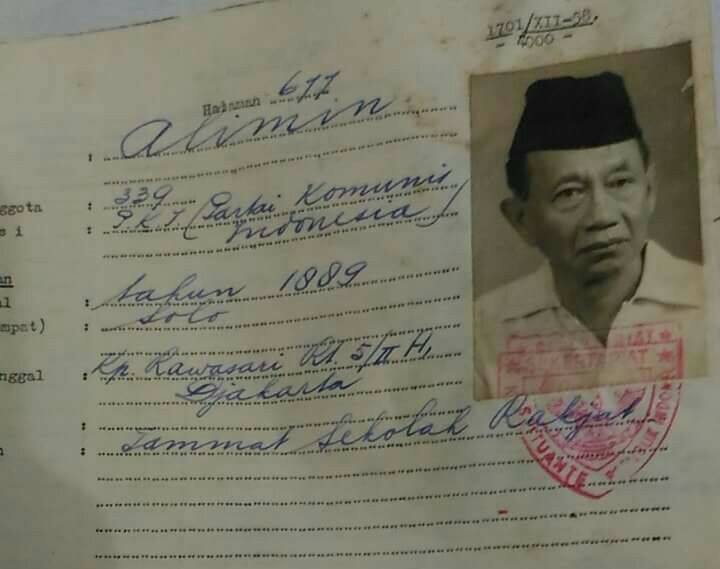 1701/XII-58.
- 4000 -
Halaman 677
: Alimin
ggota : 339
s i : P.K.I (Partai Komunis
Indonesia)
an
al : tahun 1889
mpat) : Solo
nggal : Kp. Rawasari Rt. 5/II H,
Djakarta
:
n : Tammat Sekolah Rakjat